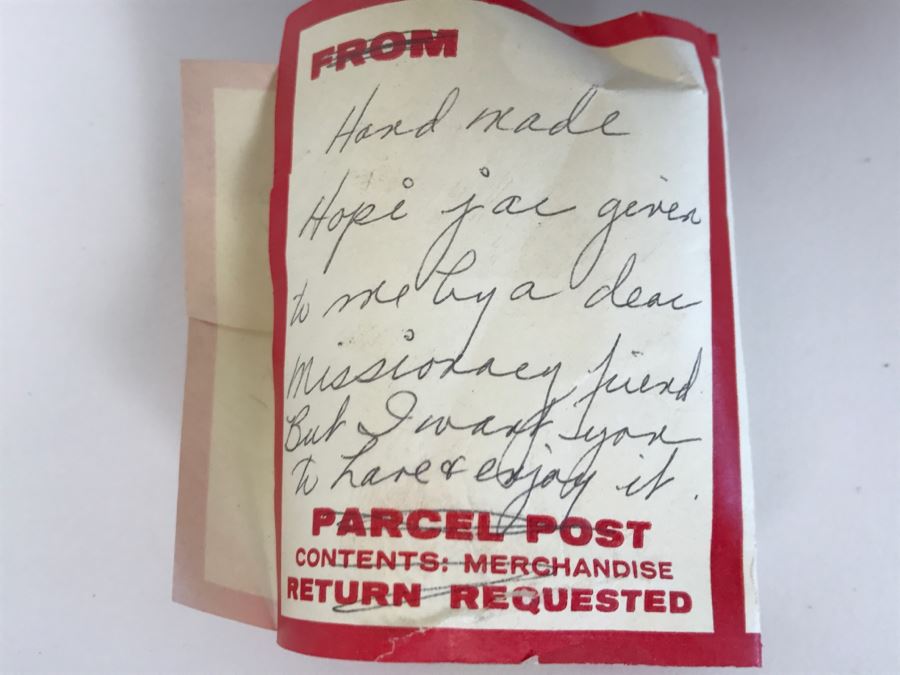 FROM
Hand made
Hopi jar given
to me by a dear
Missionary friend
But I want you
to have & enjoy it.
PARCEL POST
CONTENTS: MERCHANDISE
RETURN REQUESTED